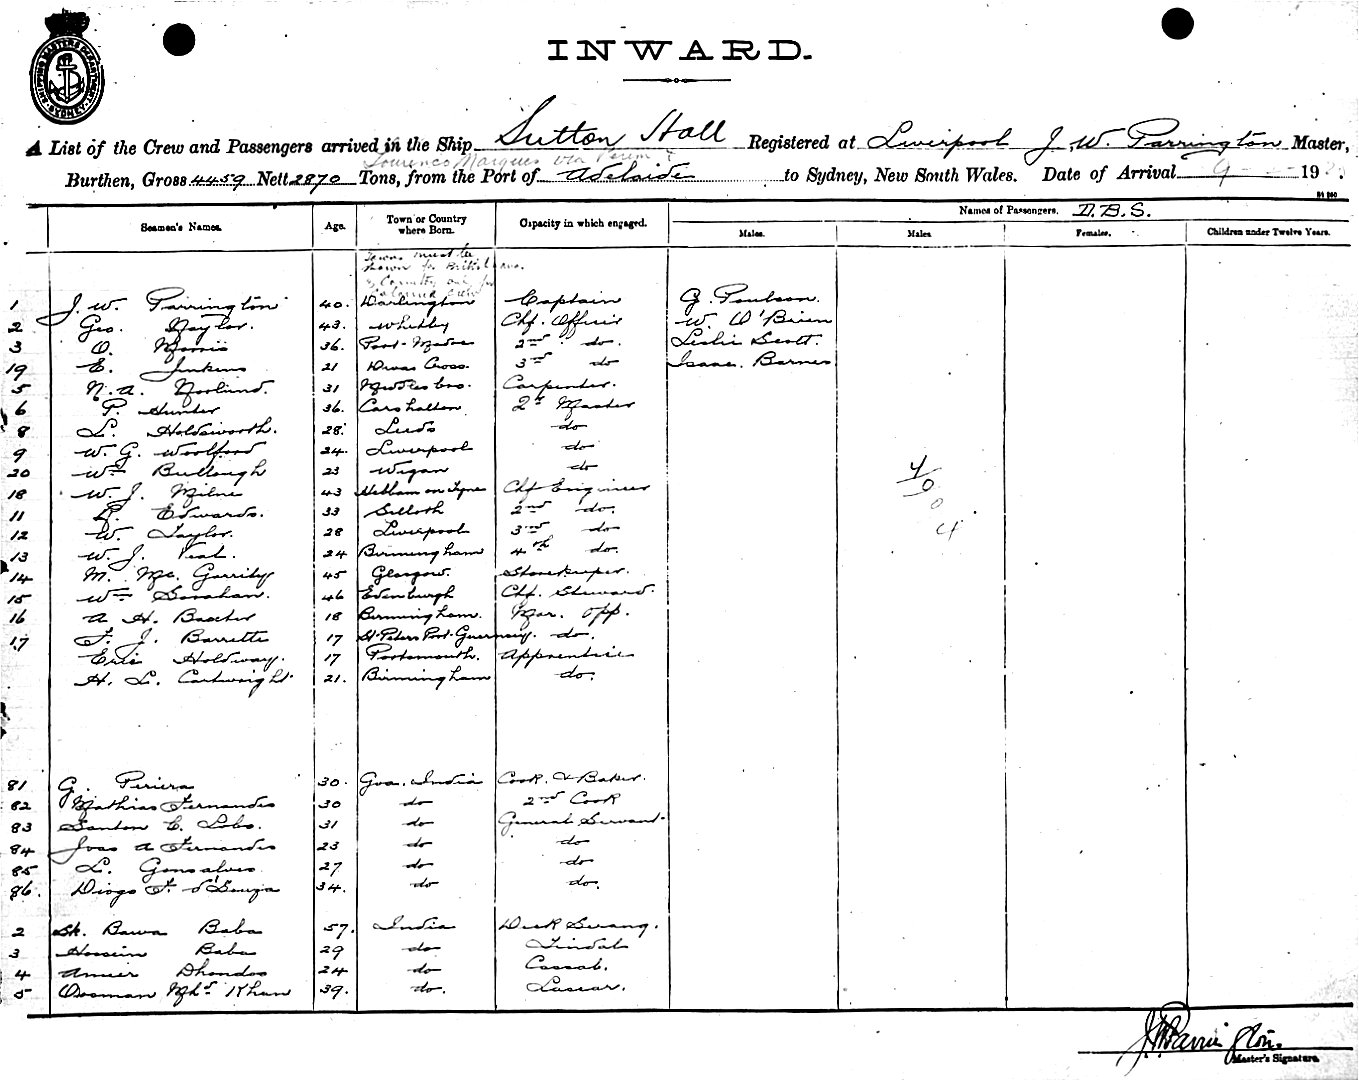 SHIPPING MASTERS DEPARTMENT SYDNEY
INWARD.
A List of the Crew and Passengers arrived in the Ship Sutton Hall Registered at Liverpool J. W. Parrington Master,
Lourenco Marques via Perim &
Burthen, Gross 4459 Nett 2870 Tons, from the Port of Adelaide to Sydney, New South Wales. Date of Arrival 9 19
Seamen's Names. Age. Town or Country where Born. Capacity in which engaged. Names of Passengers. D.B.S.
Males. Males. Females. Children under Twelve Years.
Towns must be
shown for British
& Country only for
Coloured Crew
1 J. W. Parrington 40. Darlington Captain G. Poulson.
2 Geo. Naylor. 43. Whitby Chf. Officer W. O'Brien
3 O. Morris 36. Port-Madoc 2nd do. Leslie Scott.
19 E. Jenkins 21 Dinas Cross. 3rd do Isaac Barnes
5 N. A. Norlund. 31 Middlesbro. Carpenter.
6 P. Hunter 36. Carshalton
8 L. Holdsworth. 28. Leeds do
9 W. G. Woolford 24. Liverpool do
20 Wm Bullough 23 Wigan do
18 W. J. Milne 43 Hebburn on Tyne Chf Engineer
11 R. Edwards. 33 Silloth 2nd do.
12 W. Taylor. 28 Liverpool 3rd do
13 W. J. Veal. 24 Birmingham 4th do.
14 M. Mc. Garrity 45 Glasgow. Storekeeper.
15 Wm 46 Edenburgh Chf. Steward.
16 A H. Baxter 18 Birmingham. Mar. Opp.
17 F. J. Barrette 17 St. Peters Port-Guernsey. do.
Eric Holdway. 17 Portsmouth. Apprentice
H. L. Cartwright 21. Birmingham do.
4/0
0
4
81 G. Periera 30. Goa. India Cook. & Baker.
82 Mathias Fernandis 30 do 2nd Cook
83 Santon C. Lobo. 31 do General Servant
84 Joao A Fernandis 23 do do
85 L. Gonsalves 27 do do
86. Diogo F. d'Souza 34. do do.
2 Sk. Bawa Baba 57. India Deck Serang.
3 Hossein Baba 29 do Tindal
4 Ameer Dhondoo 24 do Cassab.
5 Oosman Mhd Khan 39. do. Lascar.
J. W. Parrington.
Master's Signature.